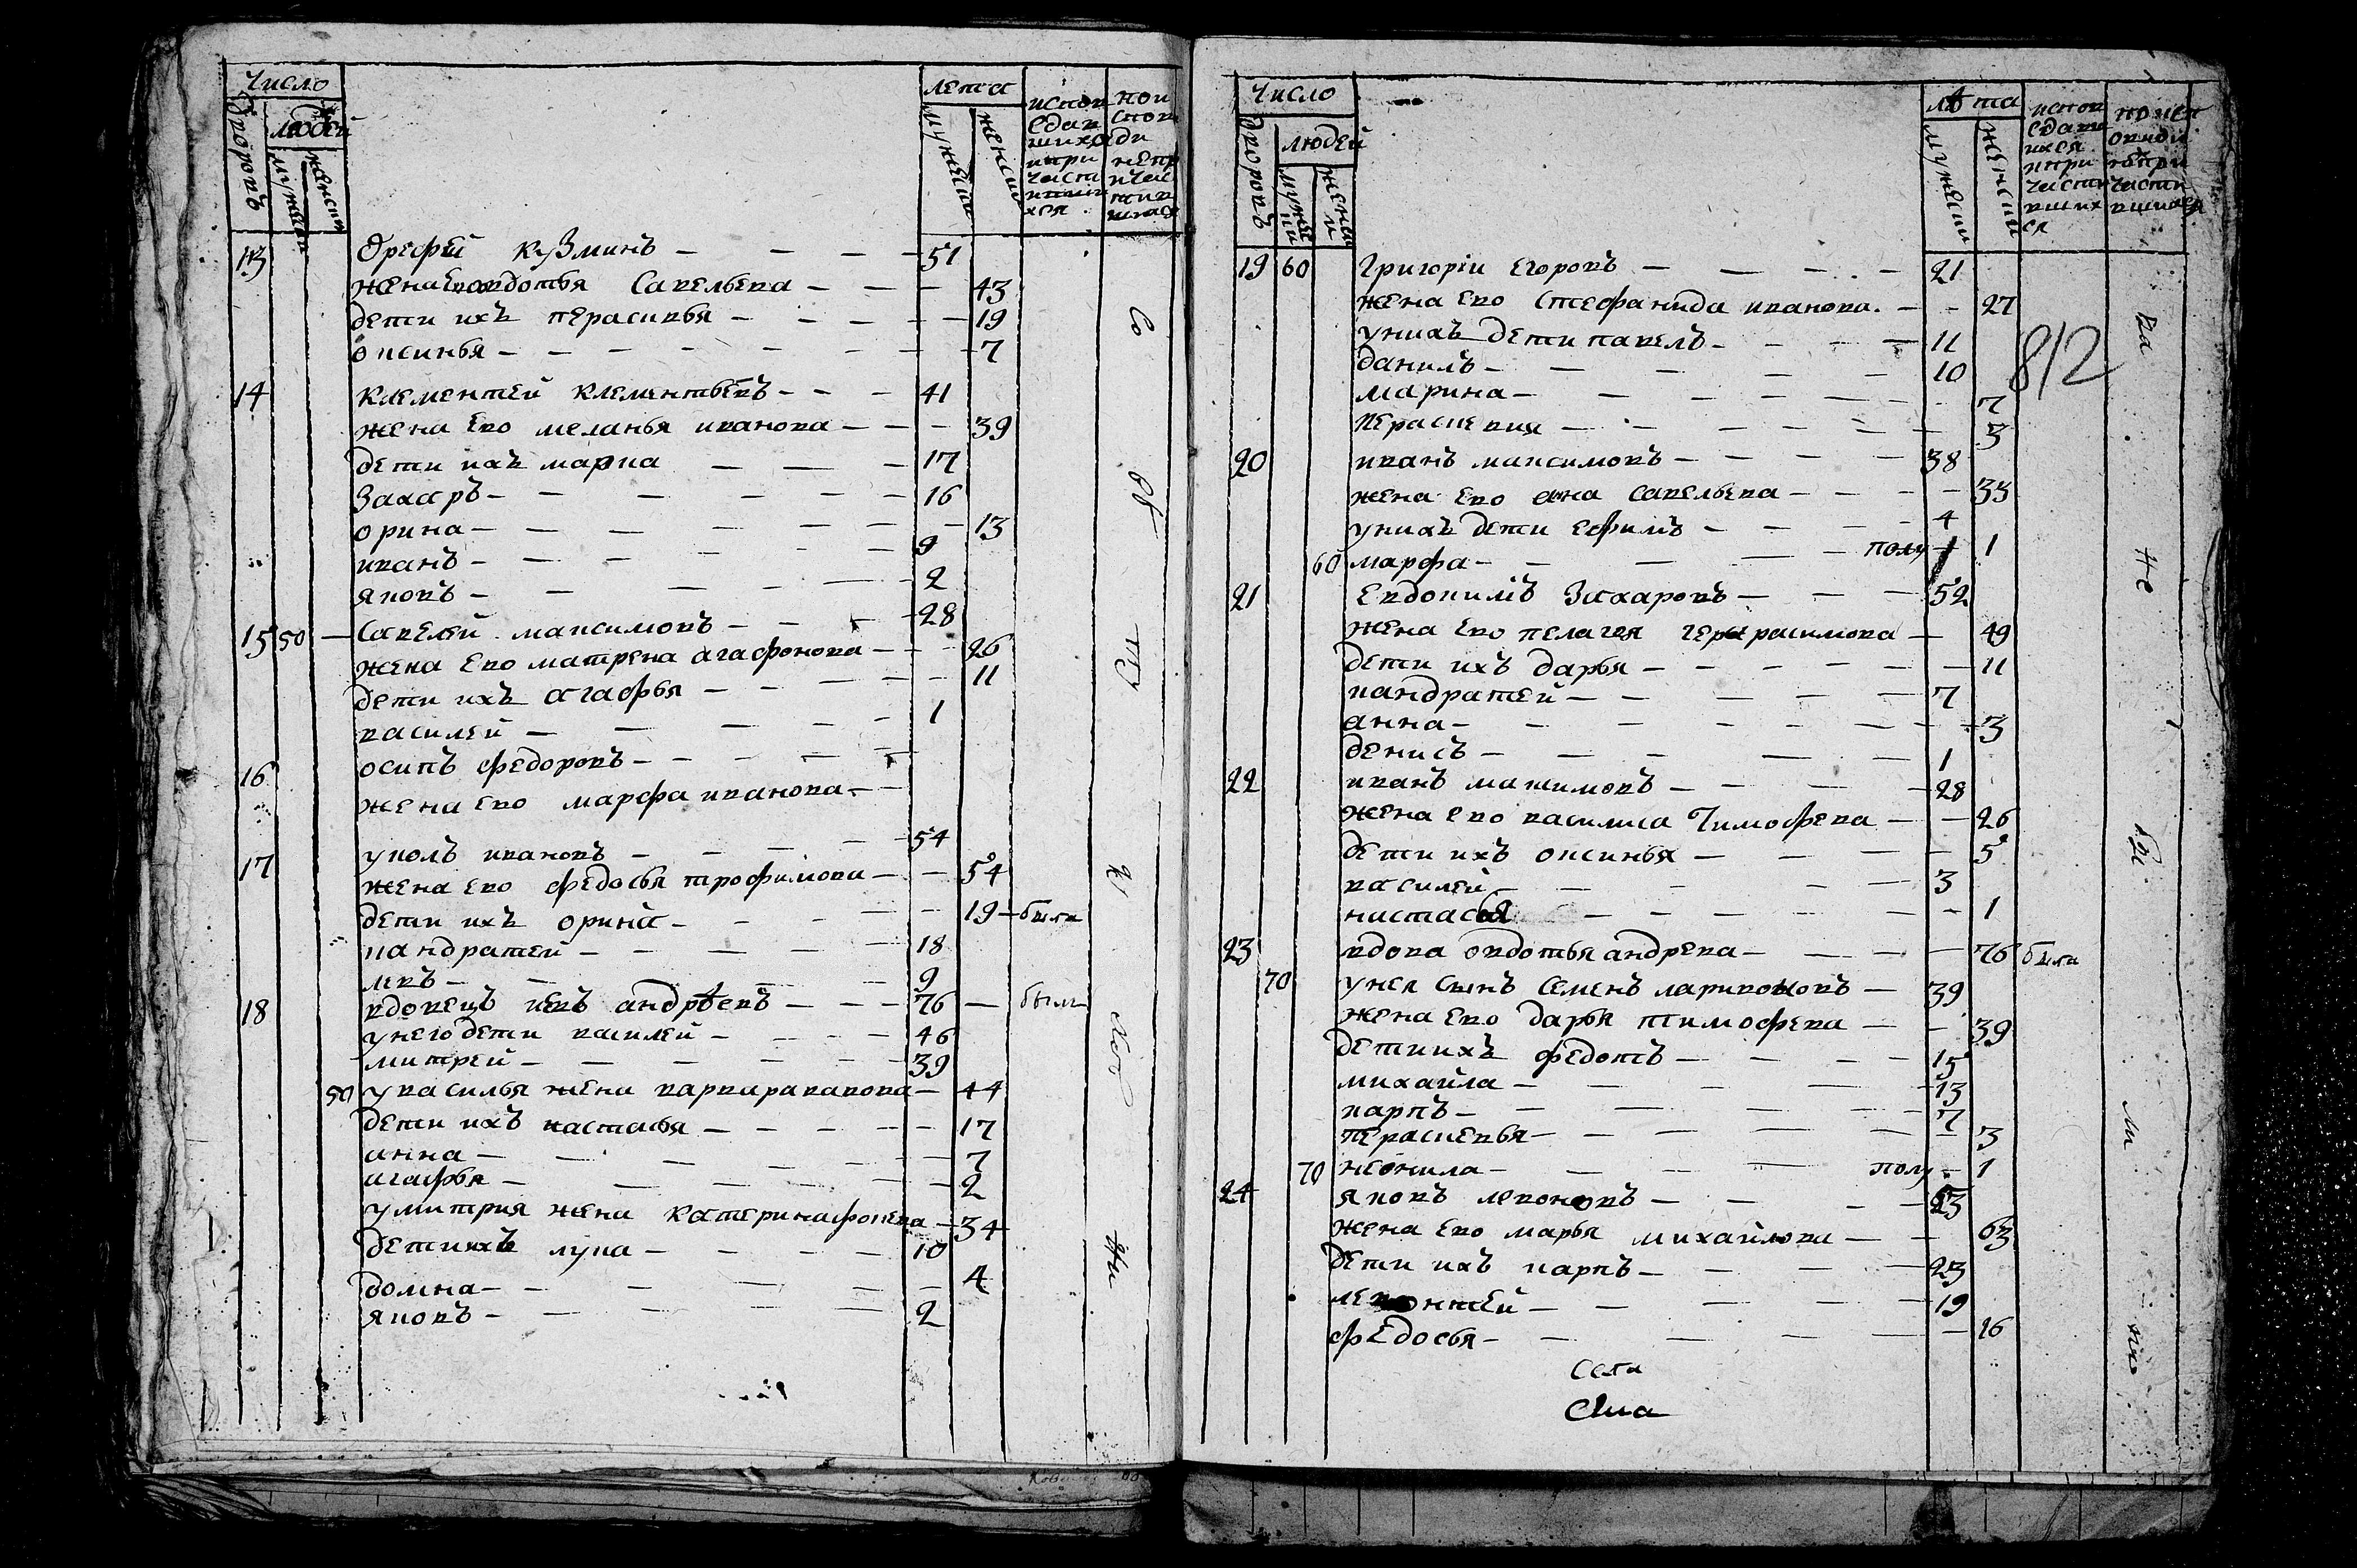 Число
дворовъ
людей
мужеска
женска
лета
мужеска
женска
испов
едав
шихся
ипри
части
вших
хся
13 Орефей кузминъ — — — — 51
жена Ево овдотья Савельева — — — 43
дети ихъ перасковья — — — — — 19
оксинья — — — — — — — — 7
14 клементей клементьевъ — — — 41
жена Ево меланья иванова — — — 39
дети ихъ марка — — — 17
Захаръ — — — — — 16
орина — — — — — — — 13
иванъ — — — — — 9
яковъ — — — — — 2
15 50 — Савелей максимовъ — — — — 28
жена Ево матрена агафонова — — — 26
дети ихъ агафья — — — — — 11
василей — — — — — 1
16 осипъ федоровъ — — — — —
жена Ево марфа иванова — —
54
17 уколъ ивановъ — — — — —
жена Ево федосья трофимова — — 54
дети ихъ орина — — — — — 19 — была
кандратей — — — — — 18
левъ — — — — — 9
18 вдовецъ андрѣевъ — — — 76 — былъ
унего дети василей — — — — 46
митрей — — — — — — 39
50 у василья жена варвара — 44
дети ихъ настасья — — — — — 17
анна — — — — — — 7
агафья — — — — — — 2
умитрия жена катерина фокеева — 34
дети ихъ лука — — — — 10
домна — — — — — 4
яковъ — — — — — 2
Число
дворовъ
людей
мужеска
женска
лѣта
мужеска
женска
испов
едавш
ихся
ипри
части
вших
ся
812
19 60 Григорiи Егоровъ — — — — 21
жена Ево Стефанида иванова. — — 27
унихъ дети павелъ — — — — 11
данилъ — — — — — 10
марина — — — — — — — 7
перасковия — — — — — — 3
20 иванъ максимовъ — — — — 38
жена Ево ана савельева — — — — 33
унихъ дети Ефимъ — — — — 4
60 марфа — — — — полу — 1
21 Евдокимъ Захаровъ — — — 52
жена Ево пелагея герасимова — 49
дети ихъ дарья — — — — — — 11
кандратей — — — — 7
анна — — — — — — — 3
денисъ — — — — — 1
22 иванъ максимовъ — — — — 28
жена Ево василиса Тимофева — — 26
дети ихъ оксинья — — — — 5
василей — — — — — 3
настасья — — — — — — 1
23 вдова овдотья андрева — — — — 76 была
70 унея сынъ Семенъ лариковоновъ — 39
жена Ево дарья тимофева — — 39
дети ихъ федотъ — — — — 15
михайла — — — — 13
карпъ — — — — — 7
перасковья — — — — — — 3
70 неонила — — — — полу — 1
24 яковъ левоновъ — — — — 63
жена Ево марья михайлова — — 63
дети ихъ карпъ — — — — 23
левонтей — — — — 19
федосья — — — — — 16
Села
Со
от
не